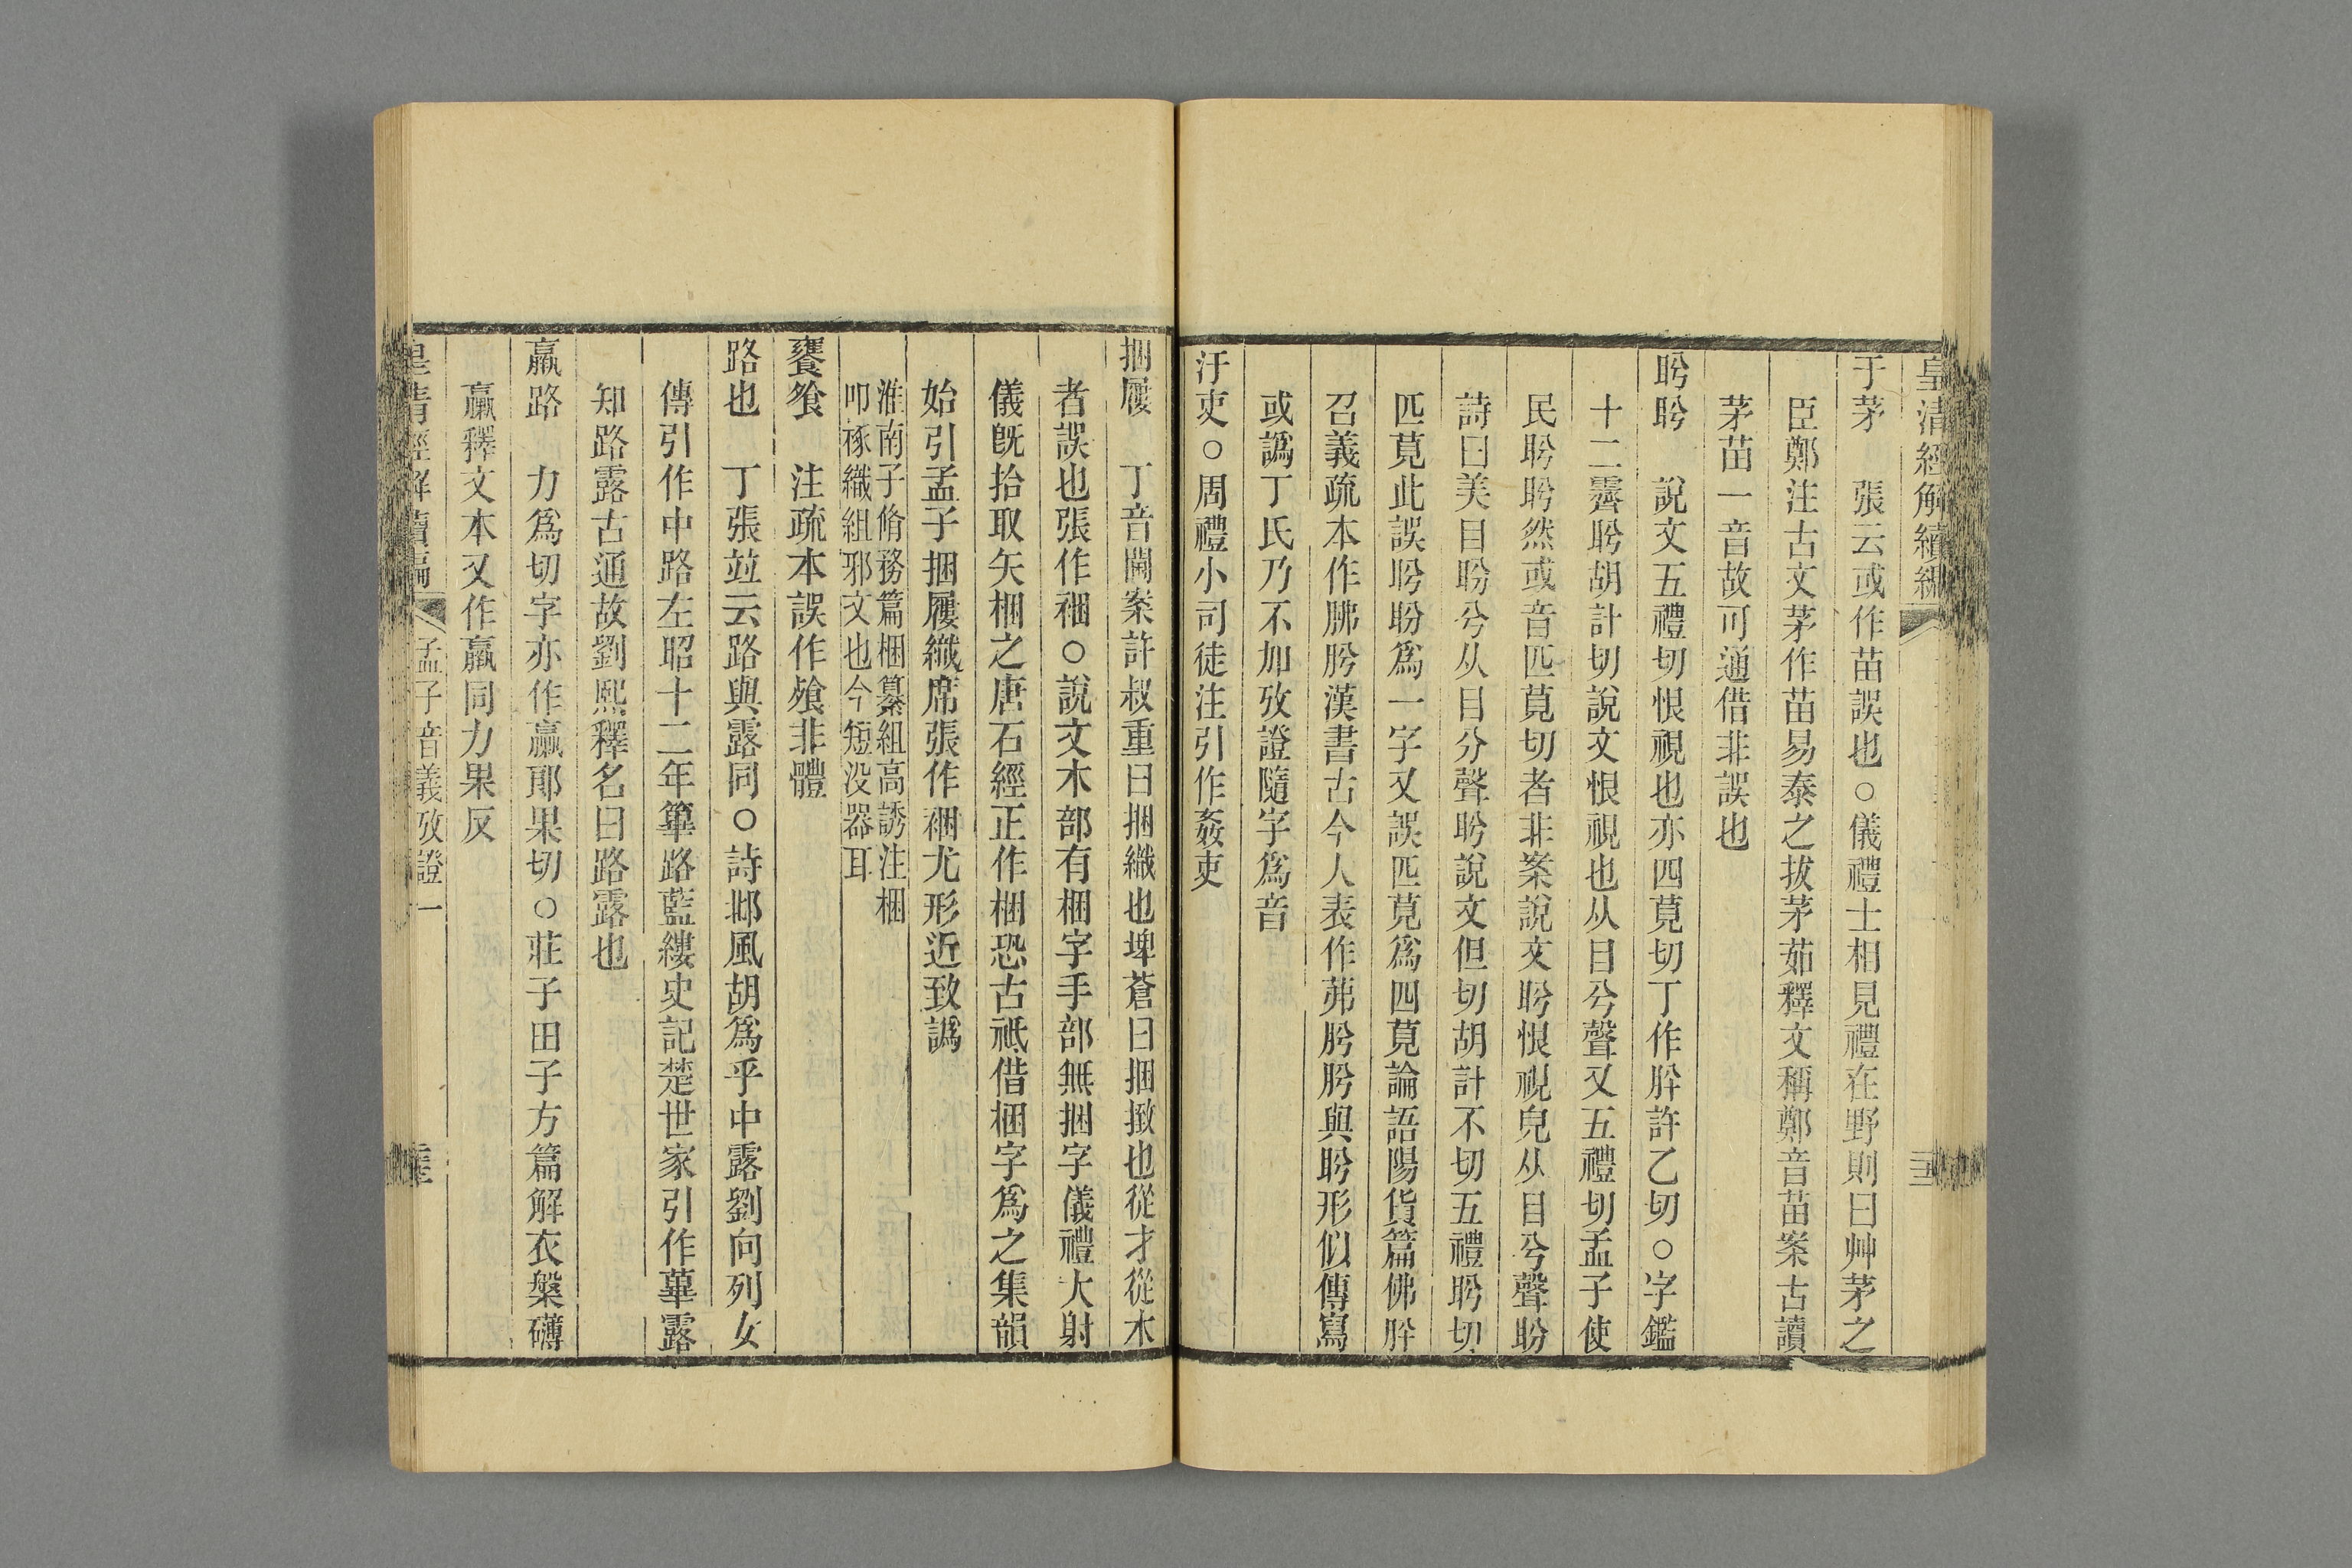 皇清經解續編
于茅　張云或作苗誤也○儀禮士相見禮在野則曰艸茅之
臣鄭注古文茅作苗易泰之拔茅茹釋文稱鄭音苗案古讀
茅苗一音故可通借非誤也
盻盻　說文五禮切恨視也亦四莧切丁作肸許乙切○字鑑
十二霽盻胡計切說文恨視也从目兮聲又五禮切孟子使
民盻盻然或音匹莧切者非案說文盻恨視皃从目兮聲盼
詩曰美目盼兮从目分聲盻說文但切胡計不切五禮盻切
匹莧此誤盻盼爲一字又誤匹莧爲四莧論語陽貨篇佛肸
召義疏本作胇肹漢書古今人表作茀肹肹與盻形似傳寫
或譌丁氏乃不加攷證隨字爲音
汙吏○周禮小司徒注引作姦吏
捆屨　丁音闑案許叔重曰捆織也埤蒼曰捆㨖也從才從木
者誤也張作裍○說文木部有梱字手部無捆字儀禮大射
儀旣拾取矢梱之唐石經正作梱恐古祗借梱字爲之集韻
始引孟子捆屨織席張作裍尤形近致譌
淮南子脩務篇梱纂組高誘注梱
叩椓織組邪文也今短没器耳
饔飧　注疏本誤作飱非體
路也　丁張竝云路與露同○詩邶風胡爲乎中露劉向列女
傳引作中路左昭十二年篳路藍縷史記楚世家引作蓽露
知路露古通故劉熙釋名曰路露也
羸路　力爲切字亦作臝郎果切○莊子田子方篇解衣槃礴
臝釋文本又作羸同力果反
皇清經解續編
孟子音義攷證一